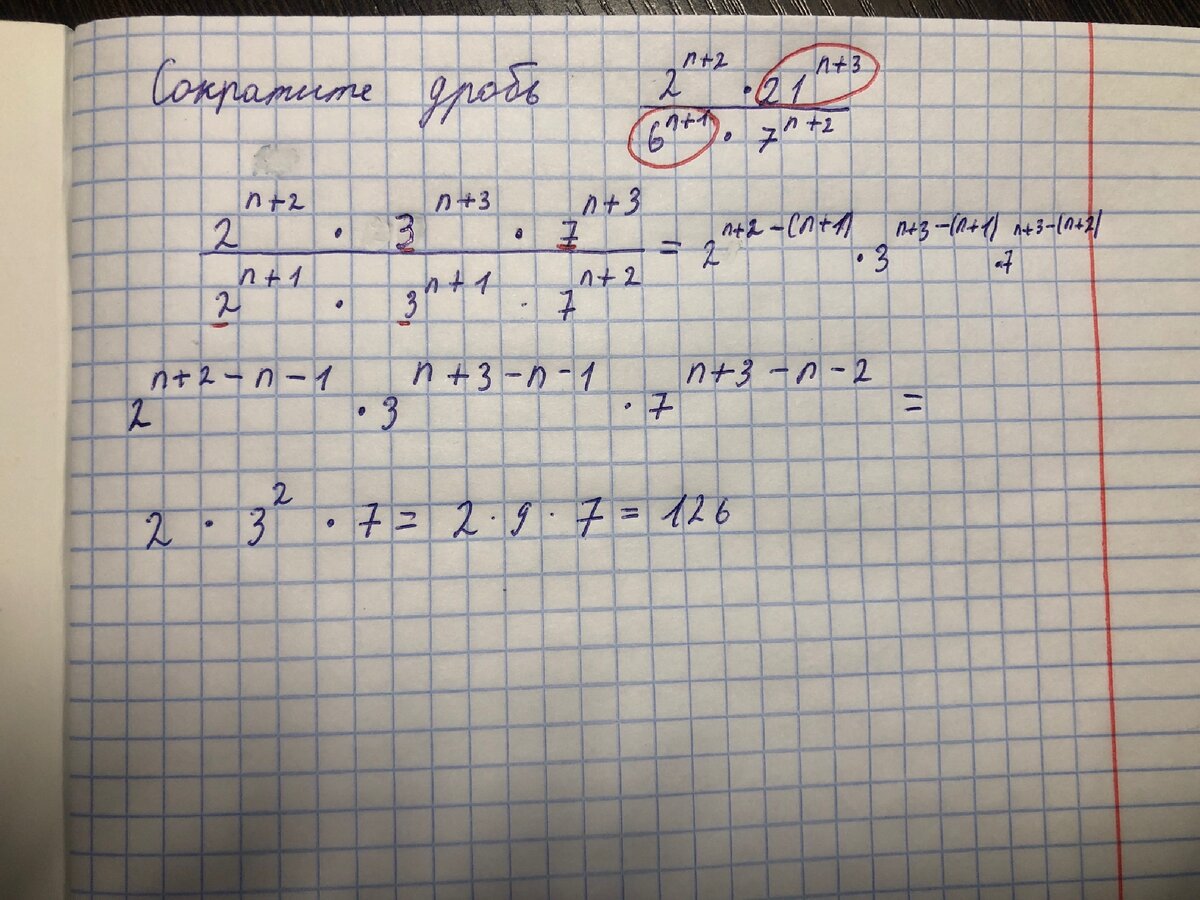 Сократите дробь (2^(n+2) · 21^(n+3)) / (6^(n+1) · 7^(n+2))
(2^(n+2) · 3^(n+3) · 7^(n+3)) / (2^(n+1) · 3^(n+1) · 7^(n+2)) = 2^(n+2-(n+1)) · 3^(n+3-(n+1)) · 7^(n+3-(n+2))
2^(n+2-n-1) · 3^(n+3-n-1) · 7^(n+3-n-2) =
2 · 3^2 · 7 = 2 · 9 · 7 = 126